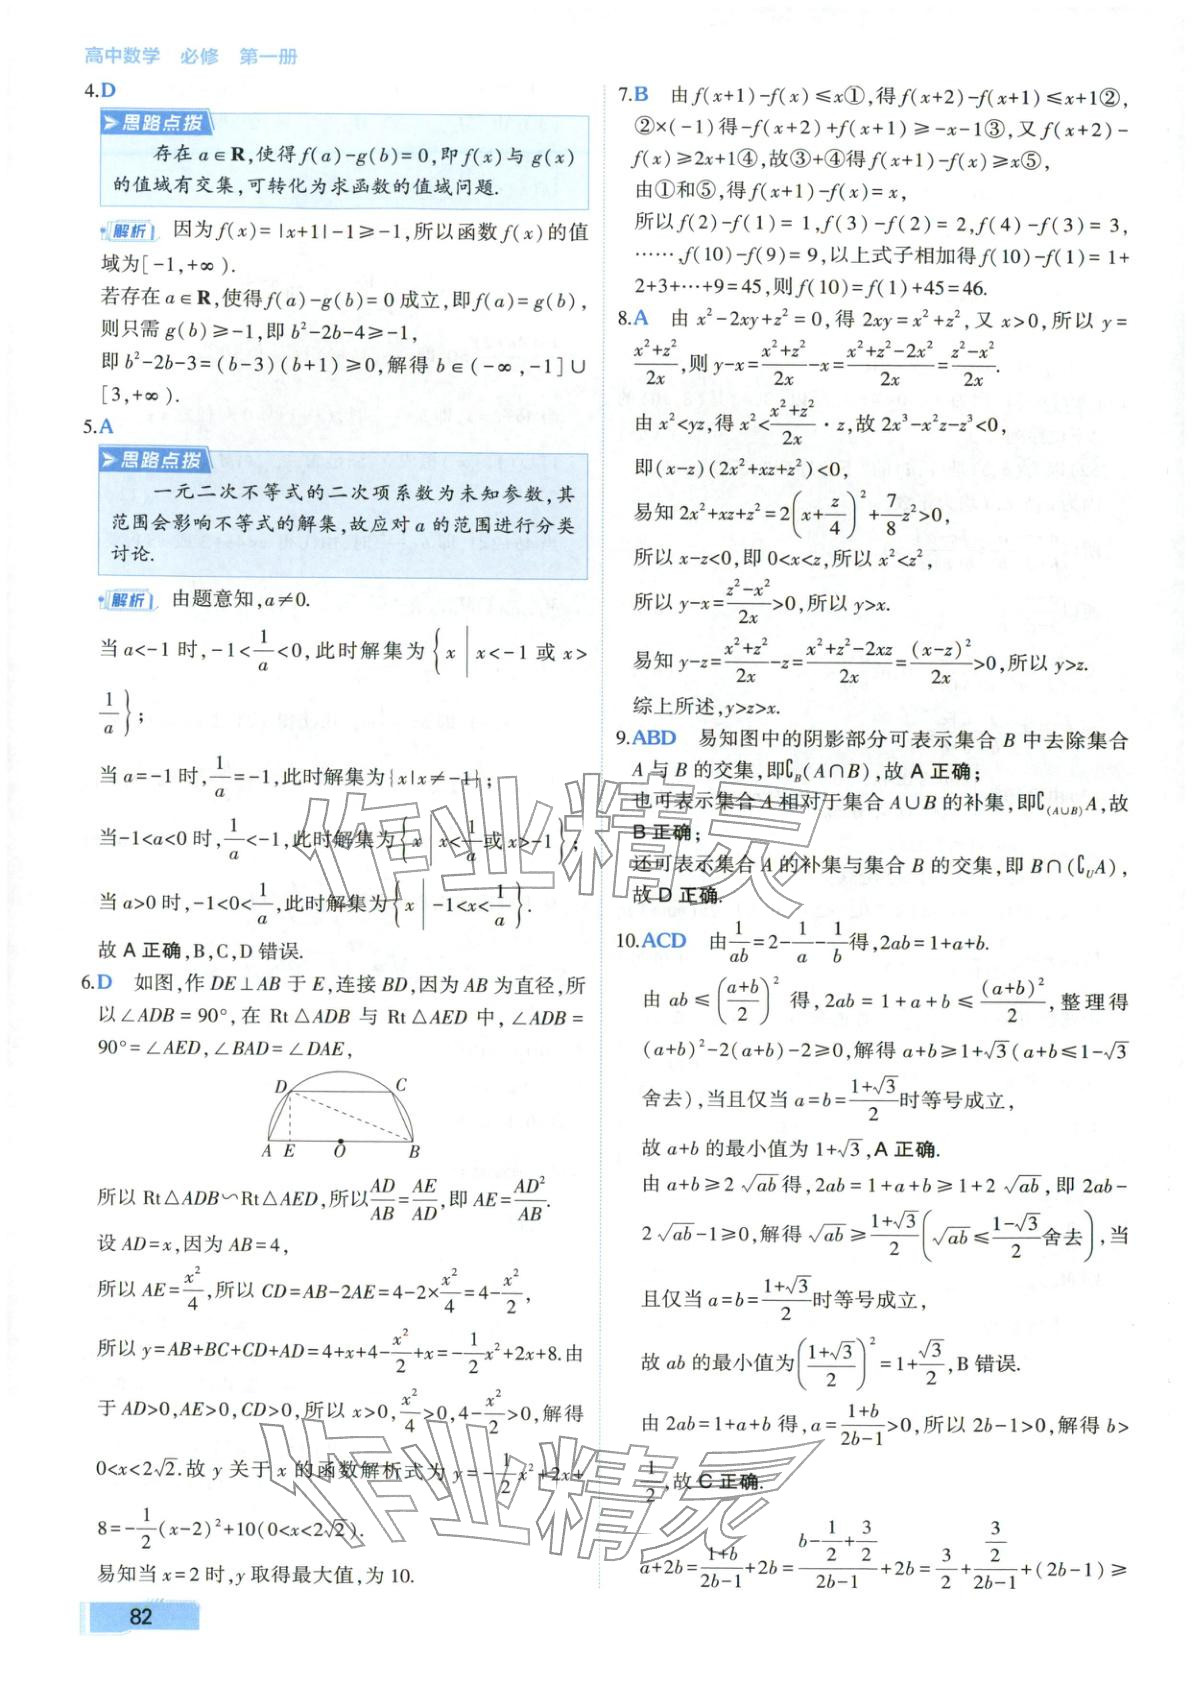 高中数学 必修 第一册
4.D
思路点拨
存在 a∈R,使得f(a)-g(b)=0,即f(x)与 g(x)
的值域有交集,可转化为求函数的值域问题.
解析 因为f(x)=|x+1|-1≥-1,所以函数f(x)的值
域为[-1,+∞).
若存在a∈R,使得f(a)-g(b)=0成立,即f(a)=g(b),
则只需g(b)≥-1,即 b²-2b-4≥-1,
即 b²-2b-3=(b-3)(b+1)≥0,解得 b∈(-∞,-1]∪
[3,+∞).
5.A
思路点拨
一元二次不等式的二次项系数为未知参数,其
范围会影响不等式的解集,故应对 a 的范围进行分类
讨论.
解析 由题意知,a≠0.
当 a<-1 时,-1<1/a<0,此时解集为{x|x<-1 或 x>
1/a};
当 a=-1 时,1/a=-1,此时解集为{x|x≠-1};
当-1<a<0 时,1/a<-1,此时解集为{x|x<1/a或x>-1};
当 a>0 时,-1<0<1/a,此时解集为{x|-1<x<1/a}.
故 A 正确,B,C,D 错误.
6.D 如图,作 DE⊥AB 于 E,连接 BD,因为 AB 为直径,所
以∠ADB=90°,在 Rt△ADB 与 Rt△AED 中,∠ADB=
90°=∠AED,∠BAD=∠DAE,
D C
A E O B
所以 Rt△ADB∽Rt△AED,所以AD/AB=AE/AD,即 AE=AD²/AB.
设 AD=x,因为 AB=4,
所以 AE=x²/4,所以 CD=AB-2AE=4-2×x²/4=4-x²/2,
所以 y=AB+BC+CD+AD=4+x+4-x²/2+x=-1/2x²+2x+8.由
于 AD>0,AE>0,CD>0,所以 x>0,x²/4>0,4-x²/2>0,解得
0<x<2√2.故 y 关于 x 的函数解析式为 y=-1/2x²+2x+
8=-1/2(x-2)²+10(0<x<2√2).
易知当 x=2 时,y 取得最大值,为 10.
82
7.B 由f(x+1)-f(x)≤x①,得f(x+2)-f(x+1)≤x+1②,
②×(-1)得-f(x+2)+f(x+1)≥-x-1③,又f(x+2)-
f(x)≥2x+1④,故③+④得f(x+1)-f(x)≥x⑤,
由①和⑤,得f(x+1)-f(x)=x,
所以f(2)-f(1)=1,f(3)-f(2)=2,f(4)-f(3)=3,
……,f(10)-f(9)=9,以上式子相加得f(10)-f(1)=1+
2+3+…+9=45,则f(10)=f(1)+45=46.
8.A 由 x²-2xy+z²=0,得 2xy=x²+z²,又 x>0,所以 y=
x²+z²/2x,则 y-x=x²+z²/2x-x=x²+z²-2x²/2x=z²-x²/2x.
由 x²<yz,得 x²<x²+z²/2x·z,故 2x³-x²z-z³<0,
即(x-z)(2x²+xz+z²)<0,
易知 2x²+xz+z²=2(x+z/4)²+7/8z²>0,
所以 x-z<0,即 0<x<z,所以 x²<z²,
所以 y-x=z²-x²/2x>0,所以 y>x.
易知 y-z=x²+z²/2x-z=x²+z²-2xz/2x=(x-z)²/2x>0,所以 y>z.
综上所述,y>z>x.
9.ABD 易知图中的阴影部分可表示集合 B 中去除集合
A 与 B 的交集,即∁B(A∩B),故 A 正确;
也可表示集合 A 相对于集合 A∪B 的补集,即∁(A∪B)A,故
B 正确;
还可表示集合 A 的补集与集合 B 的交集,即 B∩(∁UA),
故 D 正确.
10.ACD 由1/ab=2-1/a-1/b得,2ab=1+a+b.
由 ab≤(a+b/2)² 得,2ab=1+a+b≤(a+b)²/2,整理得
(a+b)²-2(a+b)-2≥0,解得 a+b≥1+√3(a+b≤1-√3
舍去),当且仅当 a=b=1+√3/2时等号成立,
故 a+b 的最小值为 1+√3,A 正确.
由 a+b≥2√ab得,2ab=1+a+b≥1+2√ab,即 2ab-
2√ab-1≥0,解得√ab≥1+√3/2(√ab≤1-√3/2舍去),当
且仅当 a=b=1+√3/2时等号成立,
故 ab 的最小值为(1+√3/2)²=1+√3/2,B 错误.
由 2ab=1+a+b 得,a=1+b/2b-1>0,所以 2b-1>0,解得 b>
1/2,故 C 正确.
a+2b=1+b/2b-1+2b=b-1/2+3/2/2b-1+2b=3/2+3/2/2b-1+(2b-1)≥
作业精灵
作业精灵